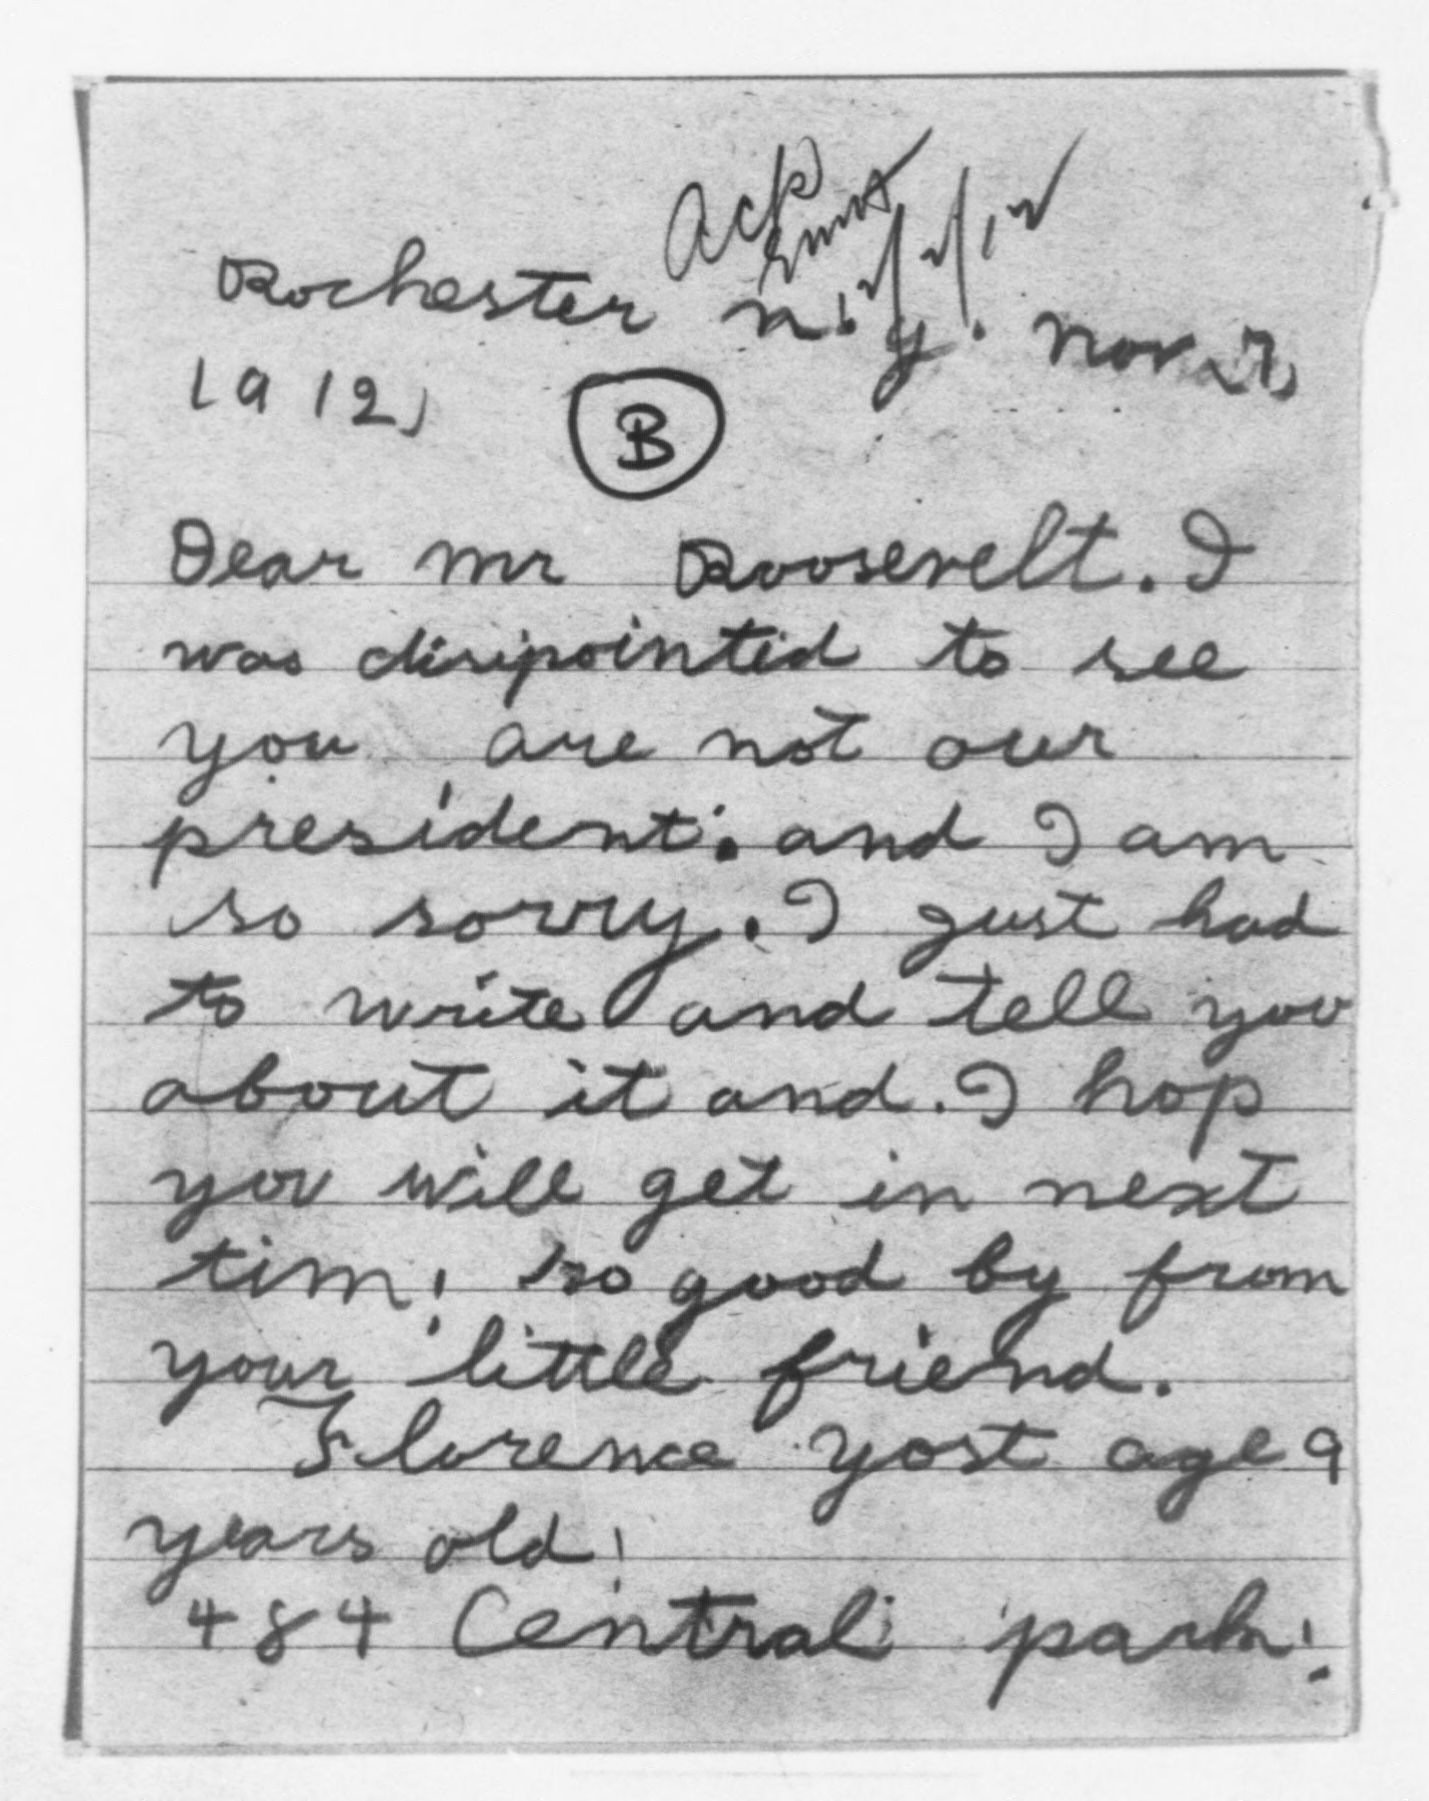 Ack
Rochester n. y. Nov. 7,
1912,
B
Dear mr Roosevelt. I
was disipointid to see
you are not our
president. and I am
so sorry. I just had
to write and tell you
about it and. I hop
you will get in next
tim! so good by from
your little friend.
Florence yost age 9
years old!
484 Central park!